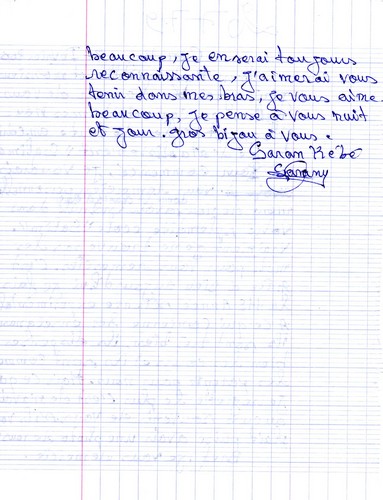 beaucoup, je en serai toujours
reconnaissante, j'aimerai vous
tenir dans mes bras, je vous aime
beaucoup, je pense à vous nuit
et jour. gros bijou à vous.
Saran Kebe